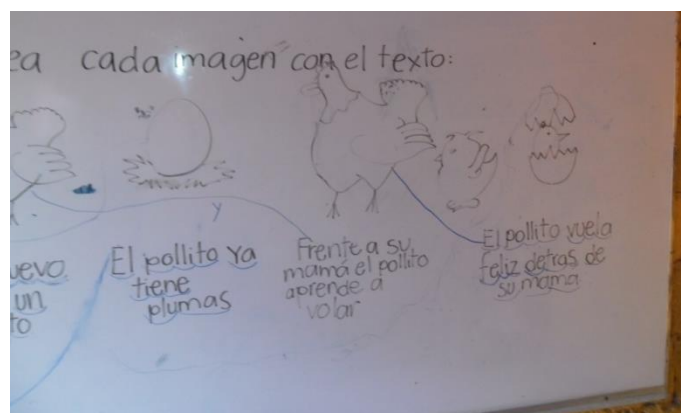 ea cada imagen con el texto:
y
uevo
un
to
El pollito ya
tiene
plumas
Frente a su
mamá el pollito
aprende a
volar
El pollito vuela
feliz detras de
su mama